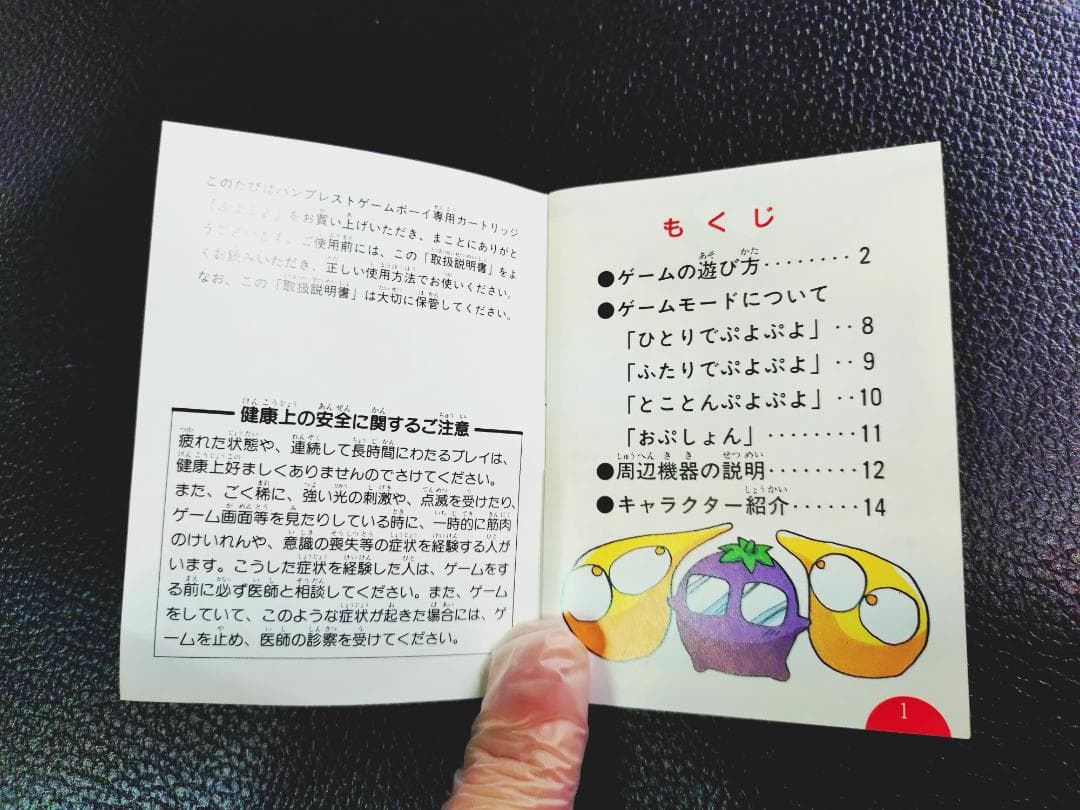 このたびはバンプレストゲームボーイ専用カートリッジ
「ぷよぷよ」をお買い上げいただき、まことにありがと
うございます。ご使用前には、この「取扱説明書」をよ
くお読みいただき、正しい使用方法でお使いください。
なお、この「取扱説明書」は大切に保管してください。
健康上の安全に関するご注意
疲れた状態や、連続して長時間にわたるプレイは、
健康上好ましくありませんのでさけてください。
また、ごく稀に、強い光の刺激や、点滅を受けたり、
ゲーム画面等を見たりしている時に、一時的に筋肉
のけいれんや、意識の喪失等の症状を経験する人が
います。こうした症状を経験した人は、ゲームをす
る前に必ず医師と相談してください。また、ゲーム
をしていて、このような症状が起きた場合には、ゲ
ームを止め、医師の診察を受けてください。
もくじ
●ゲームの遊び方········2
●ゲームモードについて
「ひとりでぷよぷよ」··8
「ふたりでぷよぷよ」··9
「とことんぷよぷよ」··10
「おぷしょん」········11
●周辺機器の説明········12
●キャラクター紹介······14
1